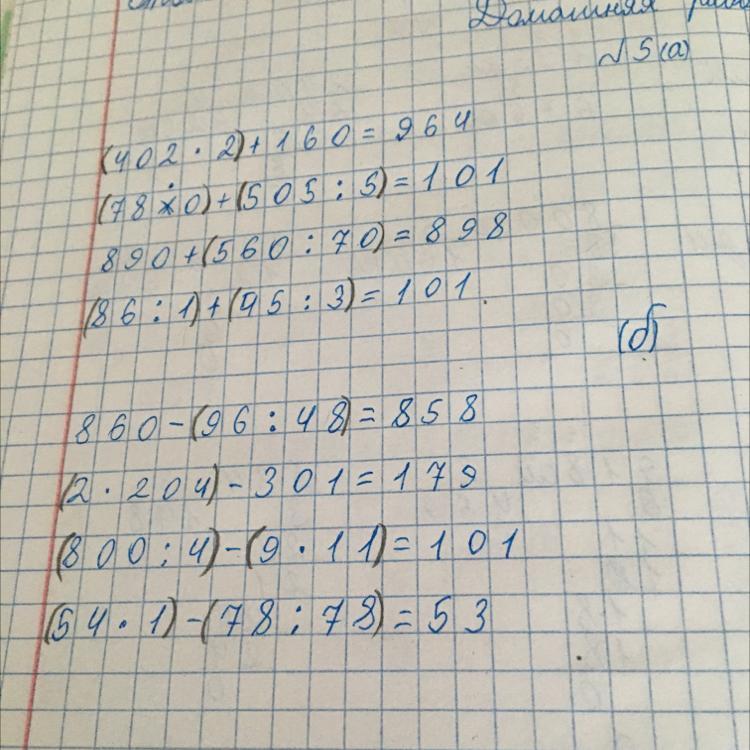 Домашняя
№ 5 (а)
(402 · 2) + 160 = 964
(78 · 0) + (505 : 5) = 101
890 + (560 : 70) = 898
(86 : 1) + (45 : 3) = 101.
(б)
860 - (96 : 48) = 858
(2 · 204) - 301 = 179
(800 : 4) - (9 · 11) = 101
(54 · 1) - (78 : 78) = 53